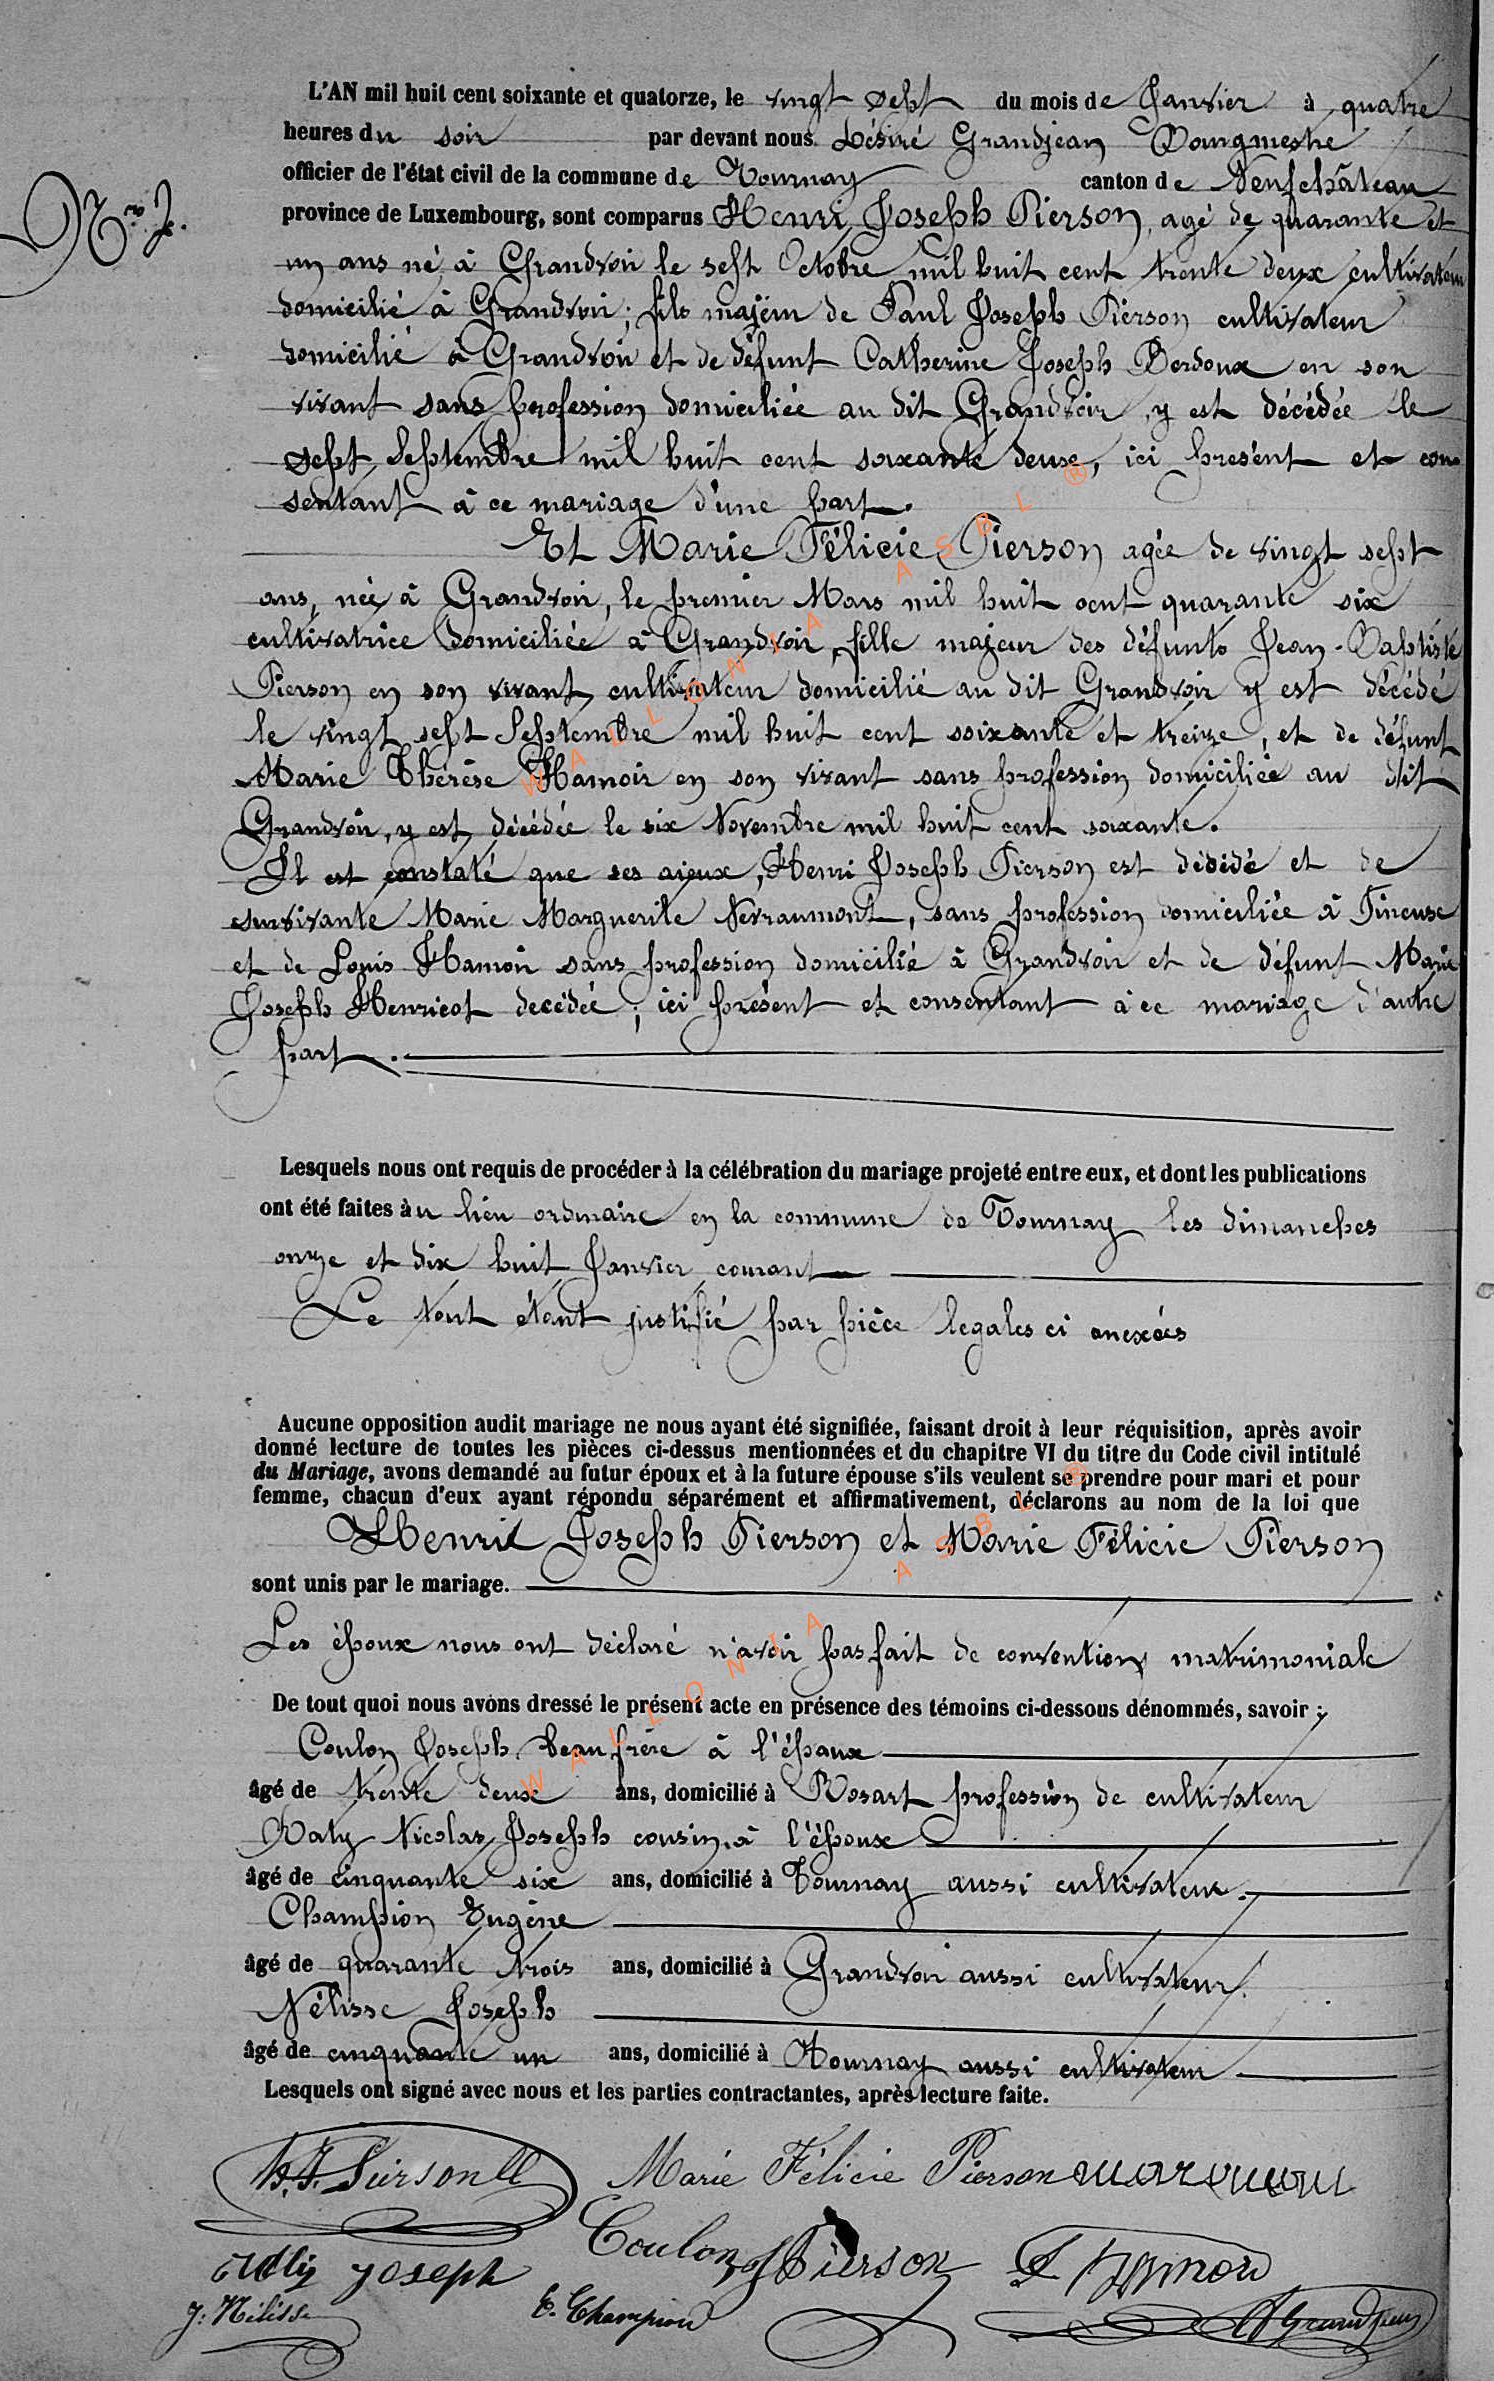 L'AN mil huit cent soixante et quatorze, le vingt sept du mois de Janvier à quatre
heures du soir par devant nous Désiré Grandjean Bourgmestre
officier de l'état civil de la commune de Tournay canton de Neufchâteau
N° 2.
province de Luxembourg, sont comparus Henri Joseph Pierson, agé de quarante et
un ans né à Grandvoir le sept Octobre mil huit cent trente deux cultivateur
domicilié à Grandvoir; fils majeur de Paul Joseph Pierson cultivateur
domicilié à Grandvoir et de défunt Catherine Joseph Bordoux en son
vivant sans profession domiciliée au dit Grandvoir, y est décédée le
sept Septembre mil huit cent soixante deux, ici présent et con
sentant à ce mariage d'une part.
Et Marie Félicie Pierson agée de vingt sept
ans, née à Grandvoir, le premier Mars mil huit cent quarante six
cultivatrice domiciliée à Grandvoir, fille majeur des défunts Jean-Baptiste
Pierson en son vivant cultivateur domicilié au dit Grandvoir y est décédé
le vingt sept Septembre mil huit cent soixante et treize, et de défunt
Marie Thérèse Hamoir en son vivant sans profession domiciliée au dit
Grandvoir, y est décédée le six Novembre mil huit cent soixante.
Il est constaté que ses aieux, Henri Joseph Pierson est décédé et de
survivante Marie Marguerite Nevraumont, sans profession domiciliée à Tineuse
et de Louis Hamoir sans profession domicilié à Grandvoir et de défunt Marie
Joseph Henricot decédée; ici présent et consentant à ce mariage d'autre
part.
Lesquels nous ont requis de procéder à la célébration du mariage projeté entre eux, et dont les publications
ont été faites au lieu ordinaire en la commune de Tournay les dimanches
onze et dix huit Janvier courant
Le tout étant justifié par pièce legales ci anexées
Aucune opposition audit mariage ne nous ayant été signifiée, faisant droit à leur réquisition, après avoir
donné lecture de toutes les pièces ci-dessus mentionnées et du chapitre VI du titre du Code civil intitulé
du Mariage, avons demandé au futur époux et à la future épouse s'ils veulent se prendre pour mari et pour
femme, chacun d'eux ayant répondu séparément et affirmativement, déclarons au nom de la loi que
Henri Joseph Pierson et Marie Félicie Pierson
sont unis par le mariage.
Les époux nous ont déclaré n'avoir pas fait de convention matrimoniale
De tout quoi nous avons dressé le présent acte en présence des témoins ci-dessous dénommés, savoir :
Coulon Joseph beau frère à l'époux
âgé de trente deux ans, domicilié à Rosart profession de cultivateur
Raty Nicolas Joseph cousin à l'époux
âgé de cinquante six ans, domicilié à Tournay aussi cultivateur.
Champion Eugène
âgé de quarante trois ans, domicilié à Grandvoir aussi cultivateur.
Nélisse Joseph
âgé de cinquante un ans, domicilié à Tournay aussi cultivateur
Lesquels ont signé avec nous et les parties contractantes, après lecture faite.
Marie Félicie Pierson
Coulon Pierson
Joseph
J. Nélisse E. Champion
WALLONIA ASBL ®
WALLONIA ASBL ®